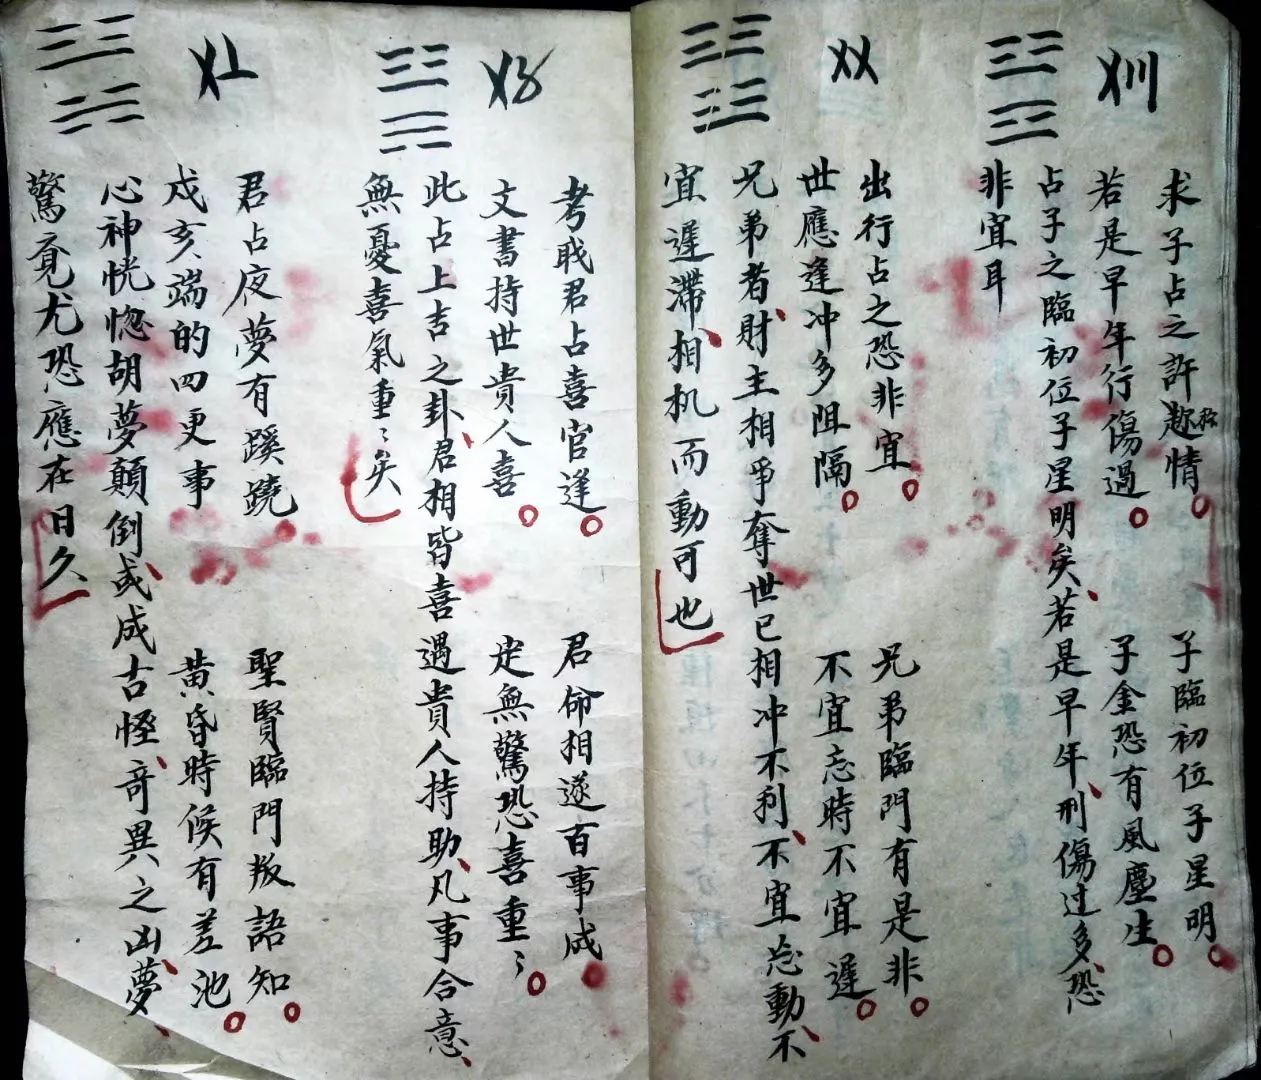 〤〣
求子占之許趂情
子臨初位子星明
若是早年行傷過
子金恐有風塵生
占子之臨初位子星明矣若是早年刑傷过多恐
非宜耳
〤〤
出行占之恐非宜
兄弟臨門有是非
世應逢冲多阻隔
不宜忘時不宜遲
兄弟者財主相爭奪世已相冲不利不宜忘動不
宜遲滯相机而動可也
〤〥
考戝君占喜官逢
君命相遂百事成
文書持世貴人喜
定無驚恐喜重〻
此占上吉之卦君相皆喜遇貴人持助凡事合意
無憂喜氣重〻矣
〤〦
君占夜夢有蹊蹺
聖賢臨門叛語知
戍亥端的四更事
黃昏時候有差池
心神恍惚胡夢顛倒或成古怪竒異之凶夢
驚覔尤恐應在日久